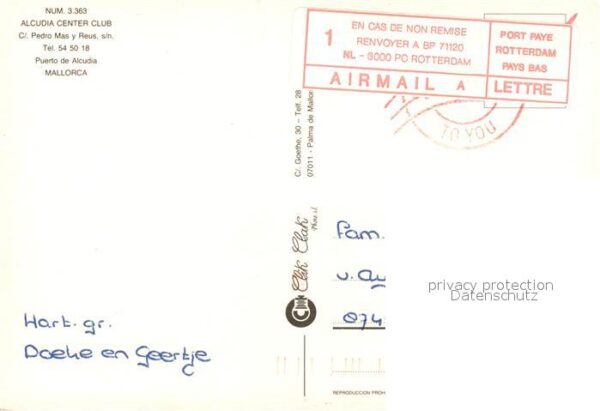 NUM. 3.363
ALCUDIA CENTER CLUB
C/. Pedro Mas y Reus, s/n.
Tel. 54 50 18
Puerto de Alcudia
MALLORCA
1
EN CAS DE NON REMISE
RENVOYER A BP 71120
NL - 3000 PC ROTTERDAM
PORT PAYE
ROTTERDAM
PAYS BAS
AIRMAIL A
LETTRE
TO YOU
C/. Goethe, 30 - Telf. 28
07011 - Palma de Mallor
Clik Clak
Phot s.l.
Fam.
v. Ay
074
privacy protection
Datenschutz
Hart. gr.
Doeke en Geertje
REPRODUCCION PROH